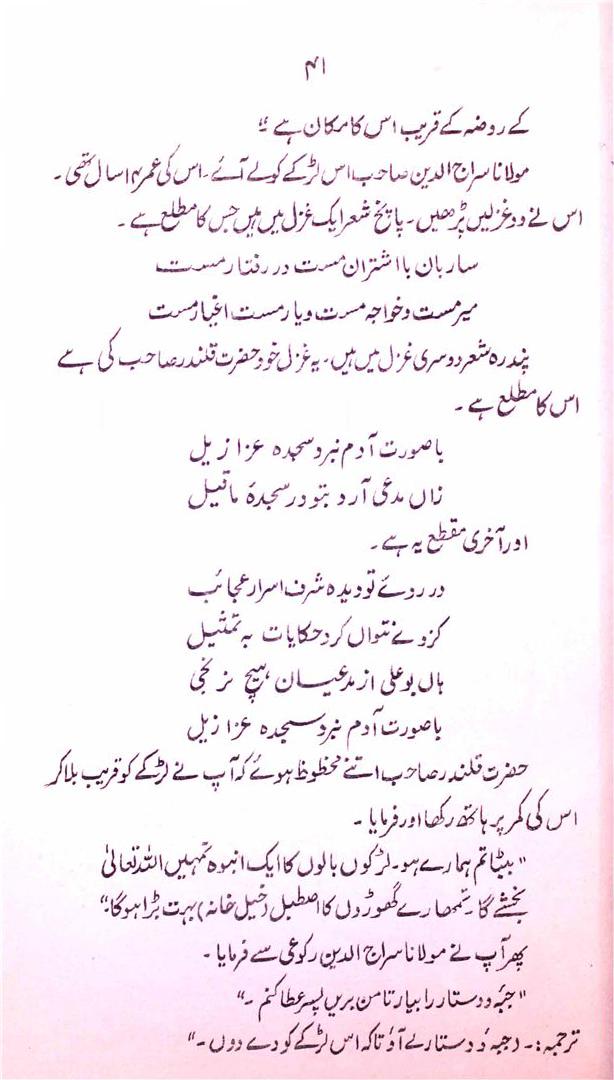 ۴۱
کے روضہ کے قریب اس کا مکان ہے "
مولانا سراج الدین صاحب اس لڑکے کو لے آئے۔ اس کی عمر ۱۴ سال تھی۔
اس نے دو غزلیں پڑھیں۔ پانچ شعر ایک غزل میں ہیں جس کا مطلع ہے۔
ساربان با اشتران مست در رفتار مست
میر مست و خواجہ مست و یار مست اغیار مست
پندرہ شعر دوسری غزل میں ہیں۔ یہ غزل خود حضرت قلندر صاحب کی ہے
اس کا مطلع ہے۔
با صورت آدم نبرد سجدہ عزازیل
زاں مدعی آرد بتو در سجدۂ ما قیل
اور آخری مقطع یہ ہے۔
در روئے تو دیدہ شرف اسرار عجائب
کز وے نتواں کرد حکایات بہ تمثیل
ہاں بوعلی از مدعیان ہیچ نرنجی
با صورت آدم نبرد سجدہ عزازیل
حضرت قلندر صاحب اتنے محظوظ ہوئے کہ آپ نے لڑکے کو قریب بلا کر
اس کی کمر پر ہاتھ رکھا اور فرمایا۔
"بیٹا تم ہمارے ہو۔ لڑکوں بالوں کا ایک انبوہ تمہیں اللہ تعالیٰ
بخشے گا۔ تمھارے گھوڑوں کا اصطبل (خیل خانہ) بہت بڑا ہوگا"
پھر آپ نے مولانا سراج الدین رکوعی سے فرمایا۔
"جبہ و دستار را بیار تا من بریں پسر عطا کنم۔"
ترجمہ:۔ (جبہ و دستار لے آؤ تاکہ اس لڑکے کو دے دوں۔"